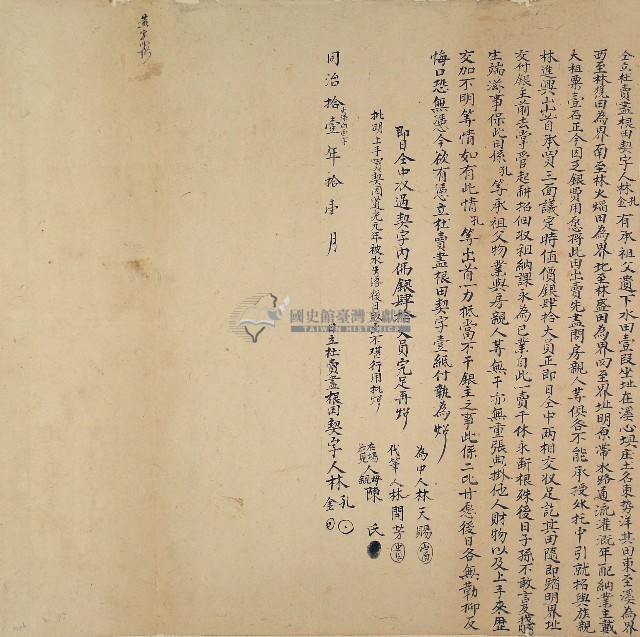 仝立杜賣盡根田契字人林孔金有承祖父遺下水田壹段坐址在溪心埧庄土名東勢洋其田東至溪為界
西至林境田為界南至林火焰田為界北至林盛田為界四至界址明原帶水路通流灌溉年配納業主戴
大租粟壹石正今因乏銀費用愿將此田出賣先盡問房親人等俱各不能承授外托中引就招與族親
林進興出首承買三面議定時值價銀肆拾大員正即日仝中兩相交收足訖其田隨即踏明界址
交付銀主前去掌管起耕招佃收租納課永為己業自此一賣千休永斷根殊後日子孫不敢言及
生端滋事保此田係孔等承祖父物業與房親人等無干亦無重張典掛他人財物以及上手來歷
交加不明等情如有此情孔等出首一力抵當不干銀主之事此係二比甘愿後日各無勒抑反
悔口恐無憑今欲有憑立杜賣盡根田契字壹紙付執為炤
即日仝中收過契字內佛銀肆拾大員完足再炤
批明上手買契因道光元年被水失落後日取出不堪行用批炤
為中人林天賜
代筆人林開芳
在場知見人母親陳氏
同治拾壹年拾壹月 日立杜賣盡根田契字人林孔金
國史館臺灣文獻館
TAIWAN HISTORICA